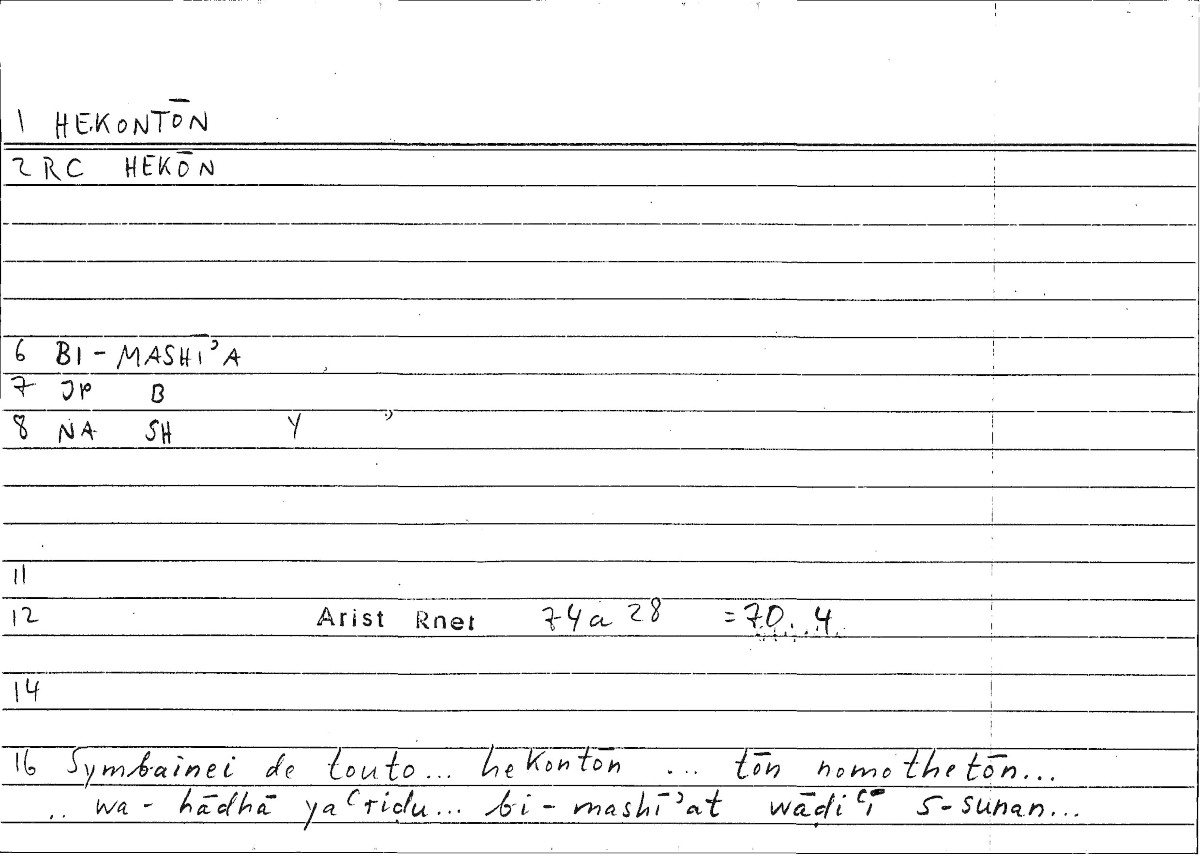 1 HEKONTŌN
2 RC HEKŌN
6 BI-MASHĪʾA
7 JP B
8 NA SH Y ʾ
11
12 Arist Rhet 74a28 =70.4
14
16 Symbainei de touto... hekontōn ... tōn nomothetōn...
.. wa-hādhā yaʿriḍu... bi-mashīʾat wāḍiʿī s-sunan...